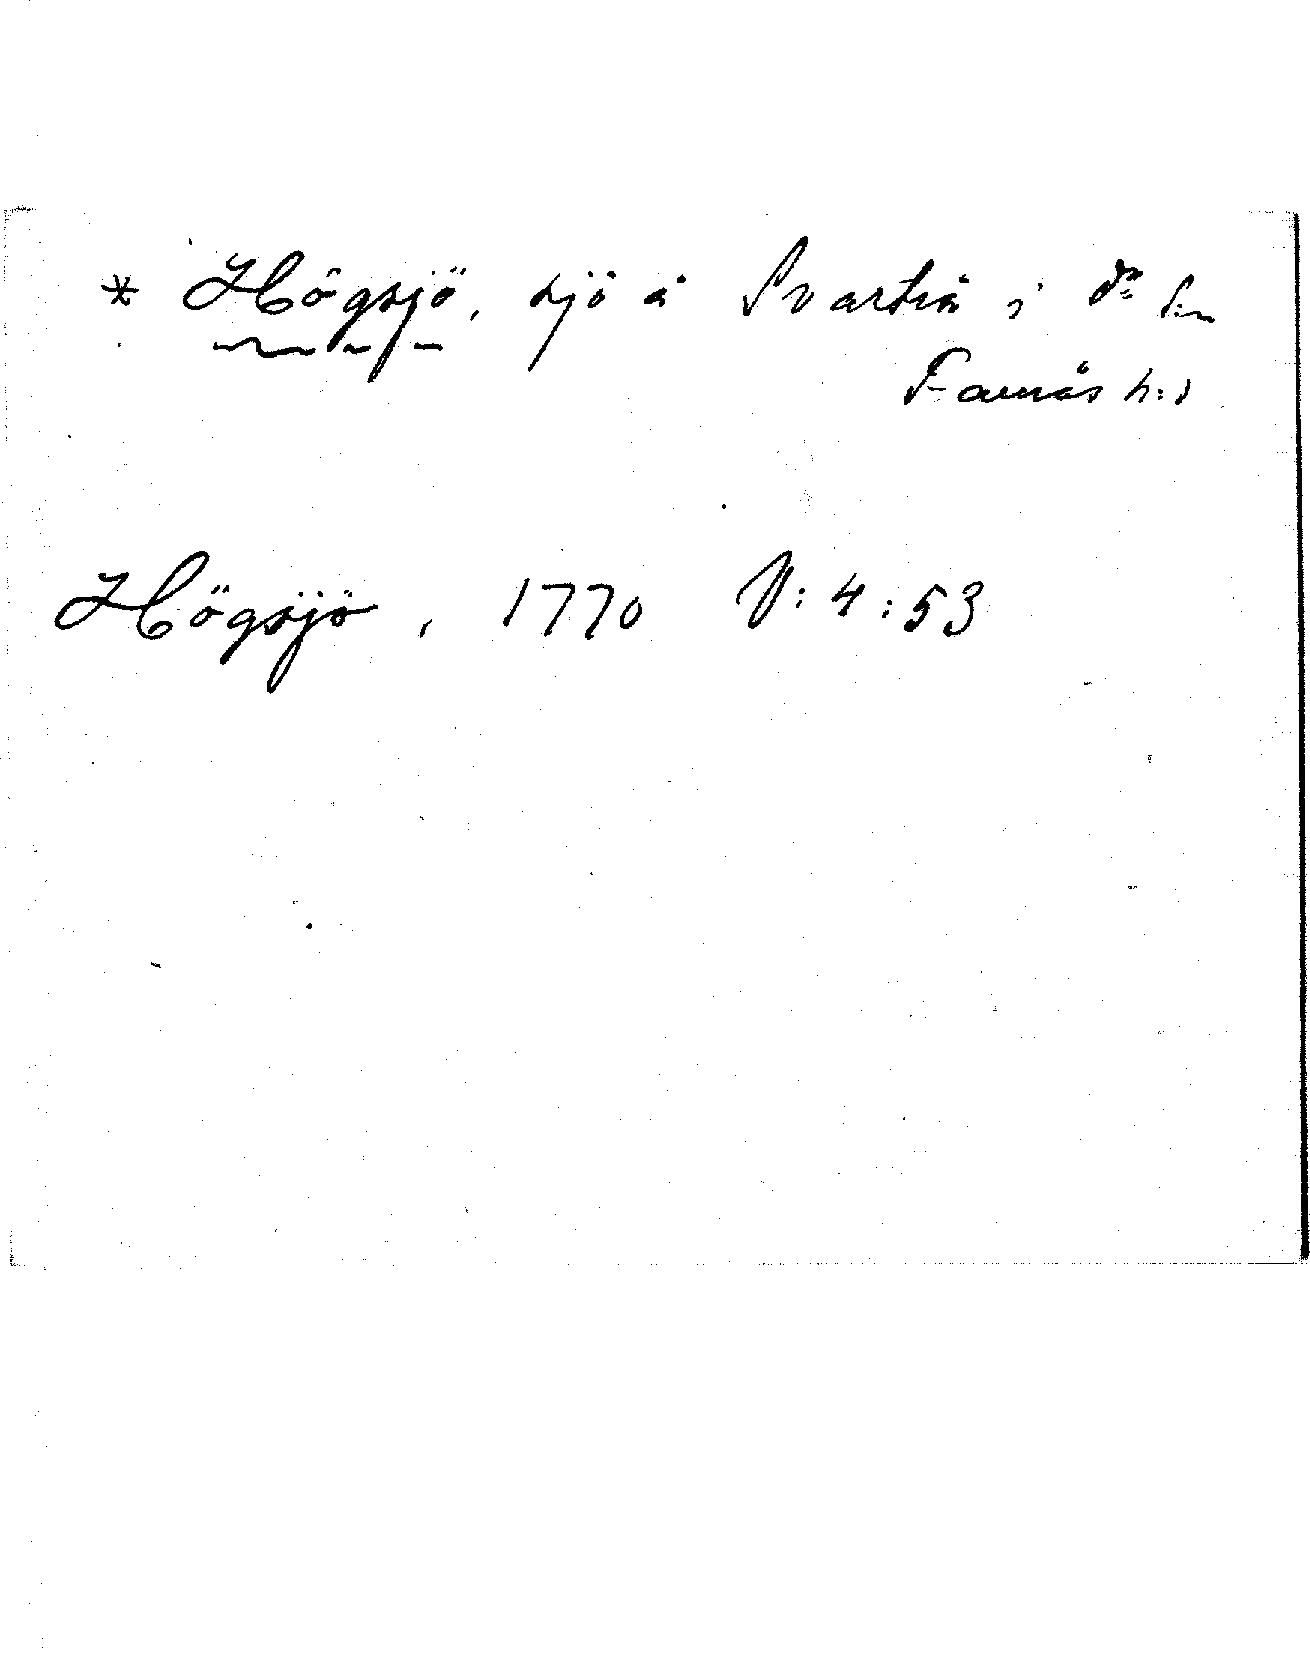 * Högsjö, sjö å Svartrå i do s:n
Faurås h:d
Högsjö, 1770 V:4:53